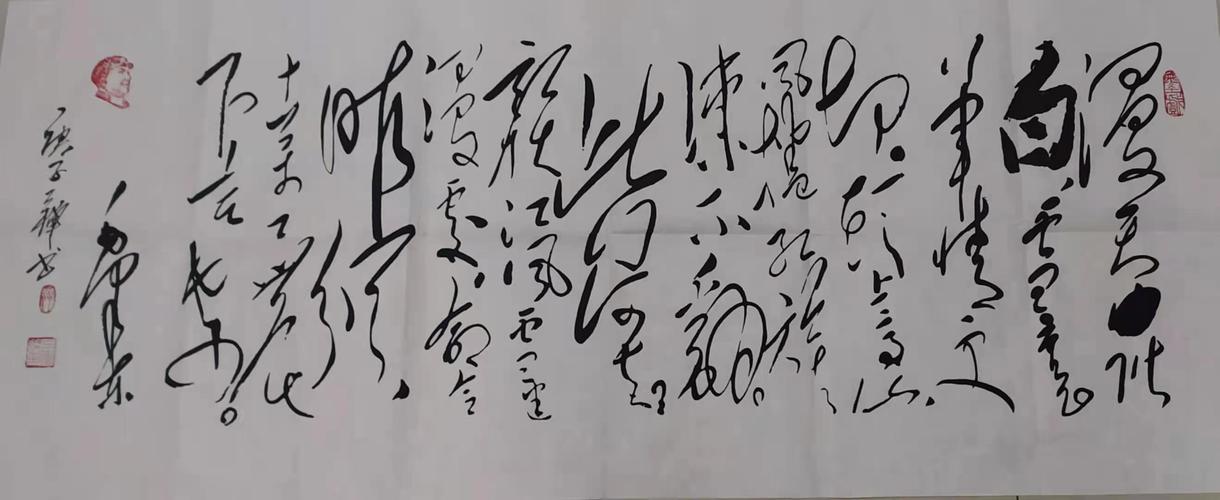 漫天皆
白，雪里行
军情更
迫。头上高山，
风卷红旗
冻不翻。
此行何去
赣江风雪迷
漫处。命令
昨颁，
十万工农
下吉安。
毛泽东
庚子 书